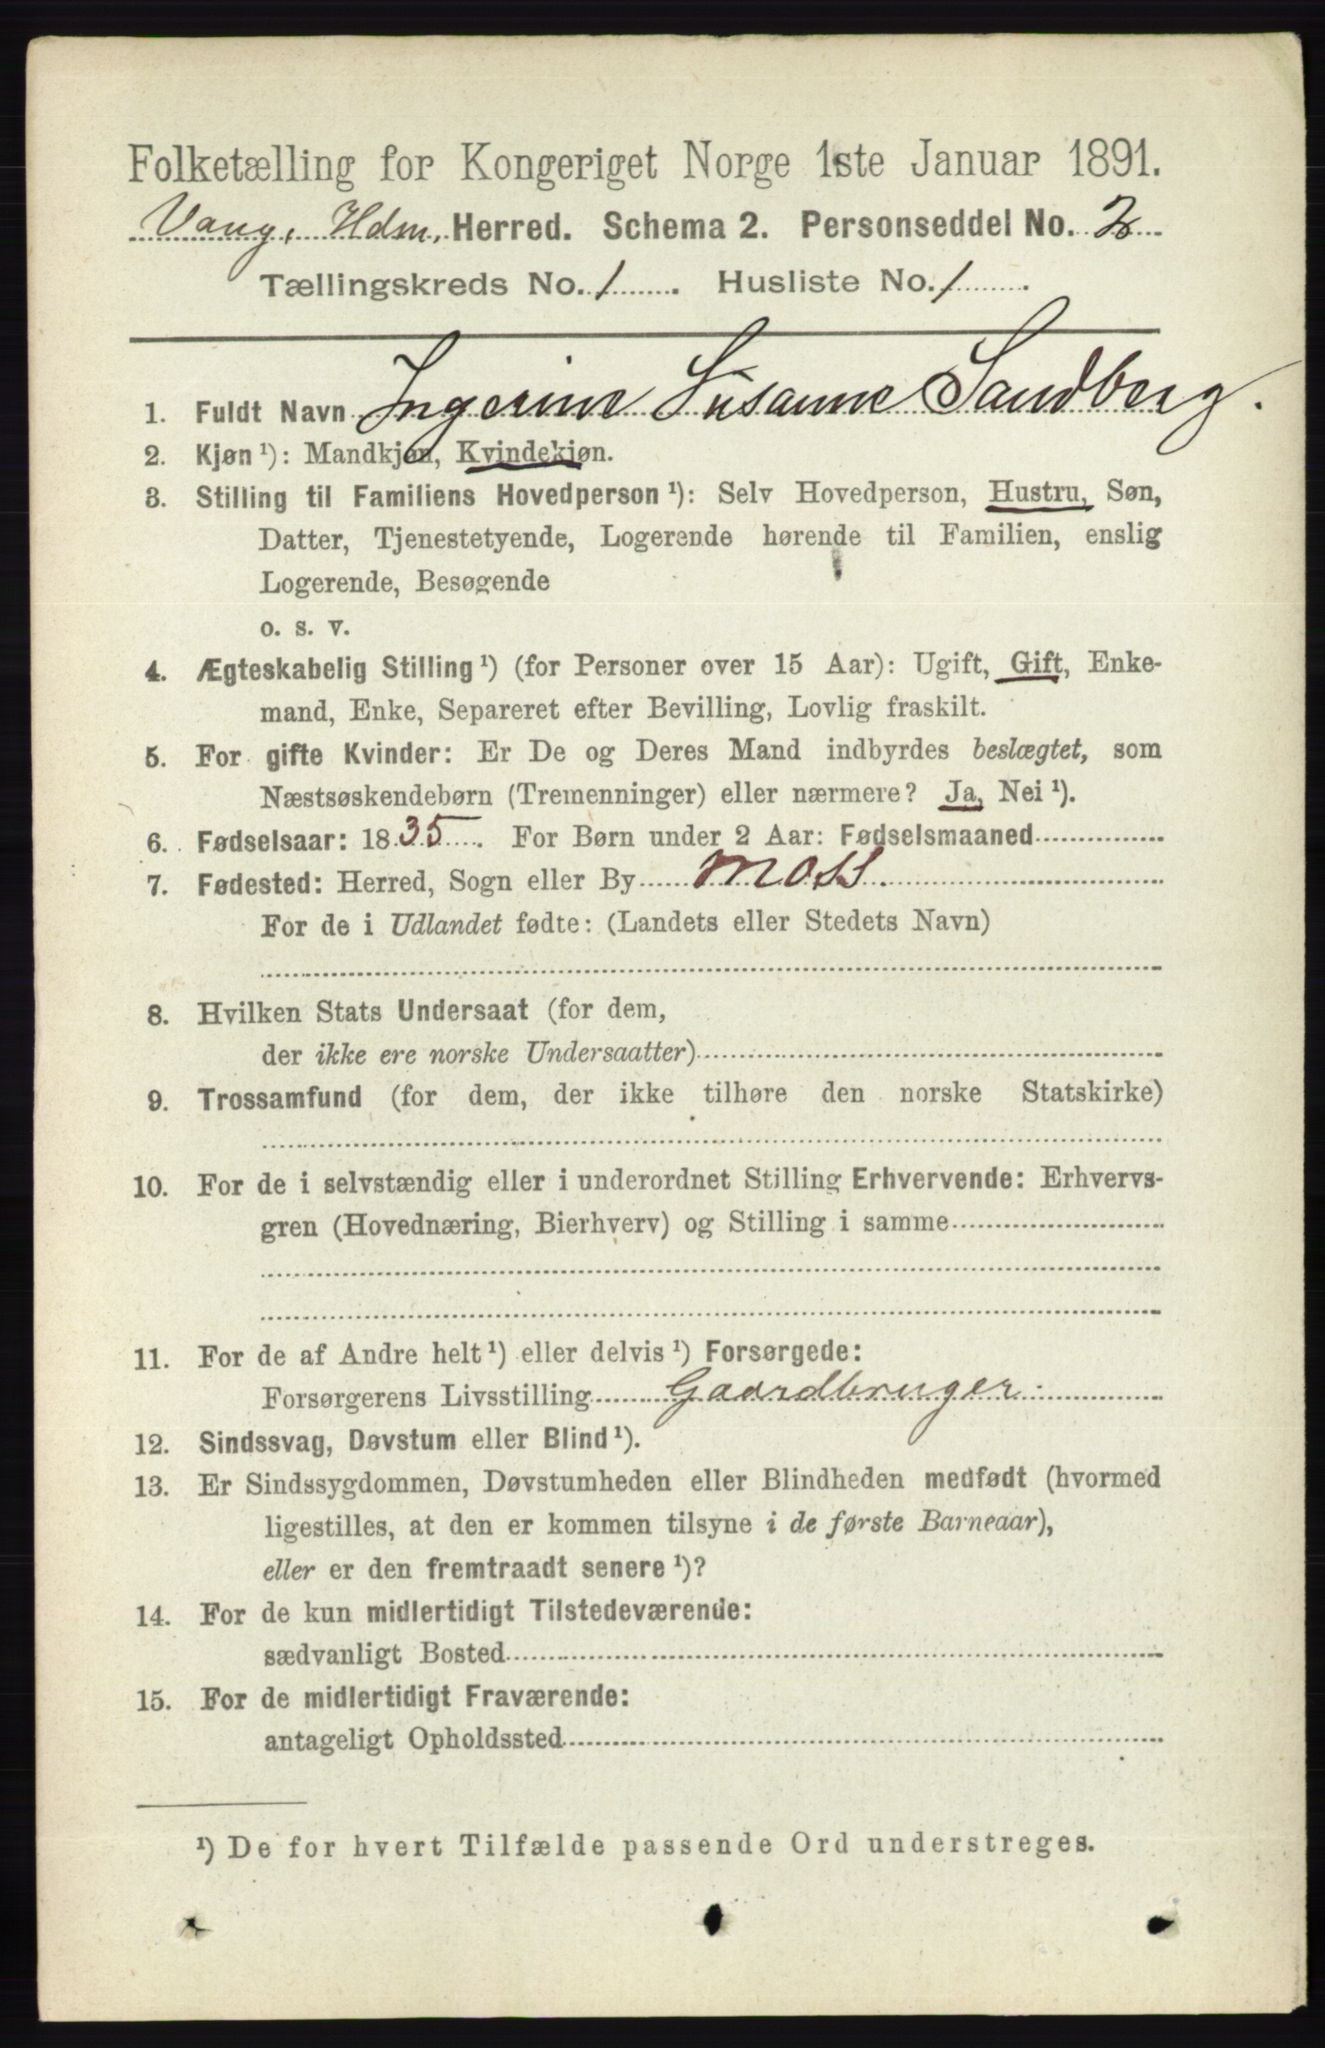 Folketælling for Kongeriget Norge 1ste Januar 1891.
Vang, Hdm, Herred. Schema 2. Personseddel No. 2
Tællingskreds No. 1. Husliste No. 1.
1. Fuldt Navn Ingerine Susanne Sandberg.
2. Kjøn ¹): Mandkjøn, Kvindekjøn.
3. Stilling til Familiens Hovedperson ¹): Selv Hovedperson, Hustru, Søn,
Datter, Tjenestetyende, Logerende hørende til Familien, enslig
Logerende, Besøgende
o. s. v.
4. Ægteskabelig Stilling ¹) (for Personer over 15 Aar): Ugift, Gift, Enke-
mand, Enke, Separeret efter Bevilling, Lovlig fraskilt.
5. For gifte Kvinder: Er De og Deres Mand indbyrdes beslægtet, som
Næstsøskendebørn (Tremenninger) eller nærmere? Ja, Nei ¹).
6. Fødselsaar: 1835. For Børn under 2 Aar: Fødselsmaaned
7. Fødested: Herred, Sogn eller By Moss.
For de i Udlandet fødte: (Landets eller Stedets Navn)
8. Hvilken Stats Undersaat (for dem,
der ikke ere norske Undersaatter)
9. Trossamfund (for dem, der ikke tilhøre den norske Statskirke)
10. For de i selvstændig eller i underordnet Stilling Erhvervende: Erhvervs-
gren (Hovednæring, Bierhverv) og Stilling i samme
11. For de af Andre helt ¹) eller delvis ¹) Forsørgede:
Forsørgerens Livsstilling Gaardbruger.
12. Sindssvag, Døvstum eller Blind ¹).
13. Er Sindssygdommen, Døvstumheden eller Blindheden medfødt (hvormed
ligestilles, at den er kommen tilsyne i de første Barneaar),
eller er den fremtraadt senere ¹)?
14. For de kun midlertidigt Tilstedeværende:
sædvanligt Bosted
15. For de midlertidigt Fraværende:
antageligt Opholdssted
¹) De for hvert Tilfælde passende Ord understreges.